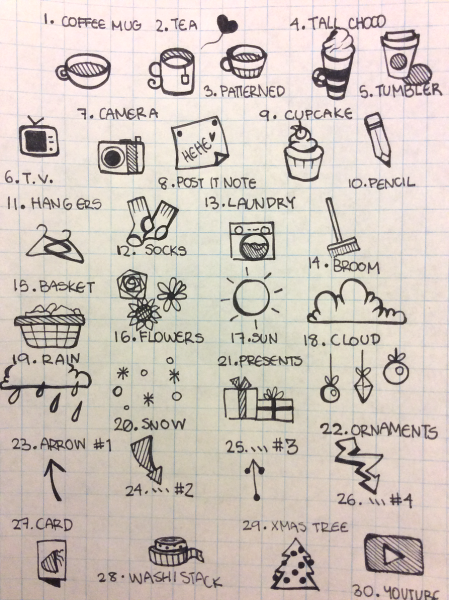 1. COFFEE MUG
2. TEA
3. PATTERNED
4. TALL CHOCO
5. TUMBLER
6. T.V.
7. CAMERA
HEHE
8. POST IT NOTE
9. CUPCAKE
10. PENCIL
11. HANGERS
12. SOCKS
13. LAUNDRY
14. BROOM
15. BASKET
16. FLOWERS
17. SUN
18. CLOUD
19. RAIN
20. SNOW
21. PRESENTS
22. ORNAMENTS
23. ARROW #1
24. ... #2
25. ... #3
26. ... #4
27. CARD
28. WASHI STACK
29. XMAS TREE
30. YOUTUBE